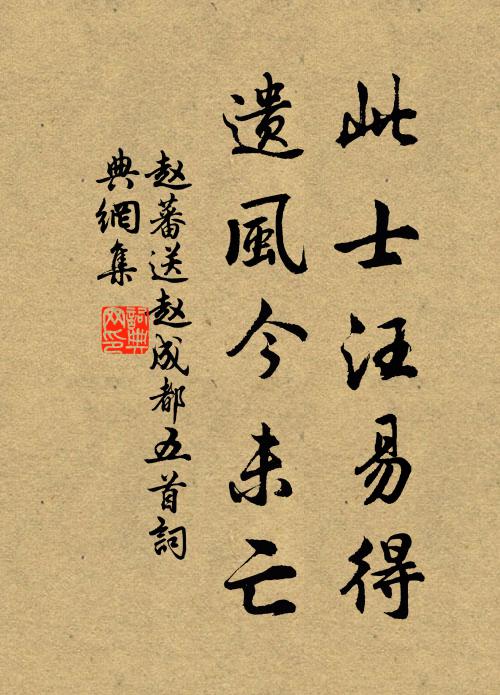 此士汪易得
遗風今未亡
赵蕃送赵成都五首詞
典網集
詞典网印